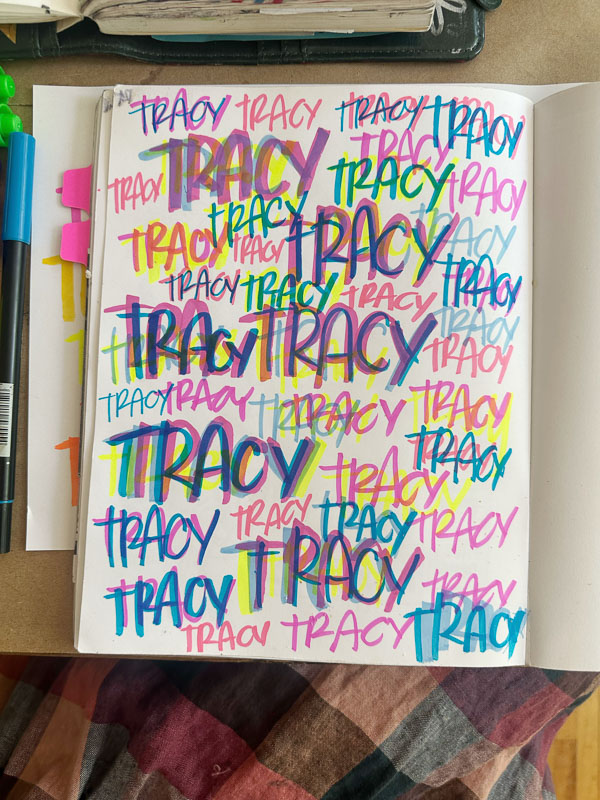 TRACY TRACY TRACY TRACY
TRACY TRACY
TRACY TRACY TRACY
TRACY
TRACY TRACY TRACY TRACY
TRACY TRACY TRACY TRACY
TRACY TRACY TRACY
TRACY
TRACY TRACY TRACY TRACY TRACY
TRACY TRACY TRACY
TRACY TRACY TRACY TRACY
TRACY TRACY
TRACY TRACY
TRACY TRACY